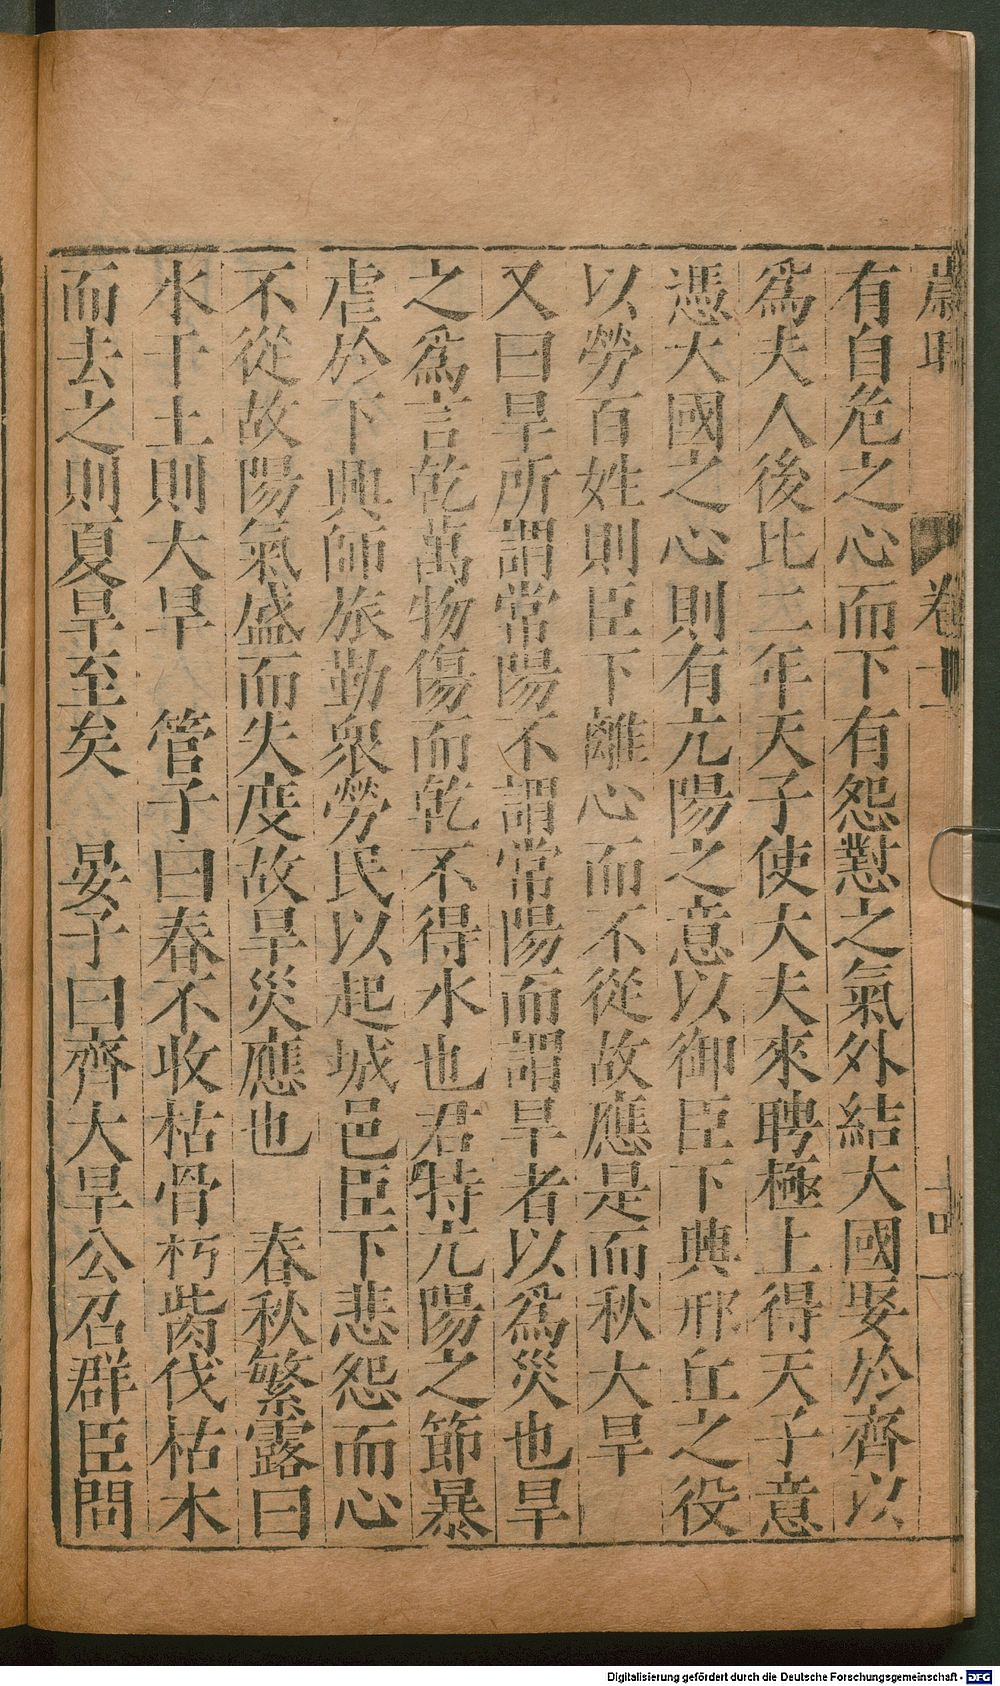 卷十
十四
有自危之心而下有怨懟之氣外結大國娶於齊以
爲夫人後比二年天子使大夫來聘極上得天子意
憑大國之心則有亢陽之意以御臣下興邢丘之役
以勞百姓則臣下離心而不從故應是而秋大旱
又曰旱所謂常陽不謂常陽而謂旱者以爲災也旱
之爲言乾萬物傷而乾不得水也君特亢陽之節暴
虐於下興師旅動衆勞民以起城邑臣下悲怨而心
不從故陽氣盛而失度故旱災應也　春秋繁露曰
水干土則大旱　管子曰春不收枯骨朽胔伐枯木
而去之則夏旱至矣　晏子曰齊大旱公召群臣問
Digitalisierung gefördert durch die Deutsche Forschungsgemeinschaft - DFG